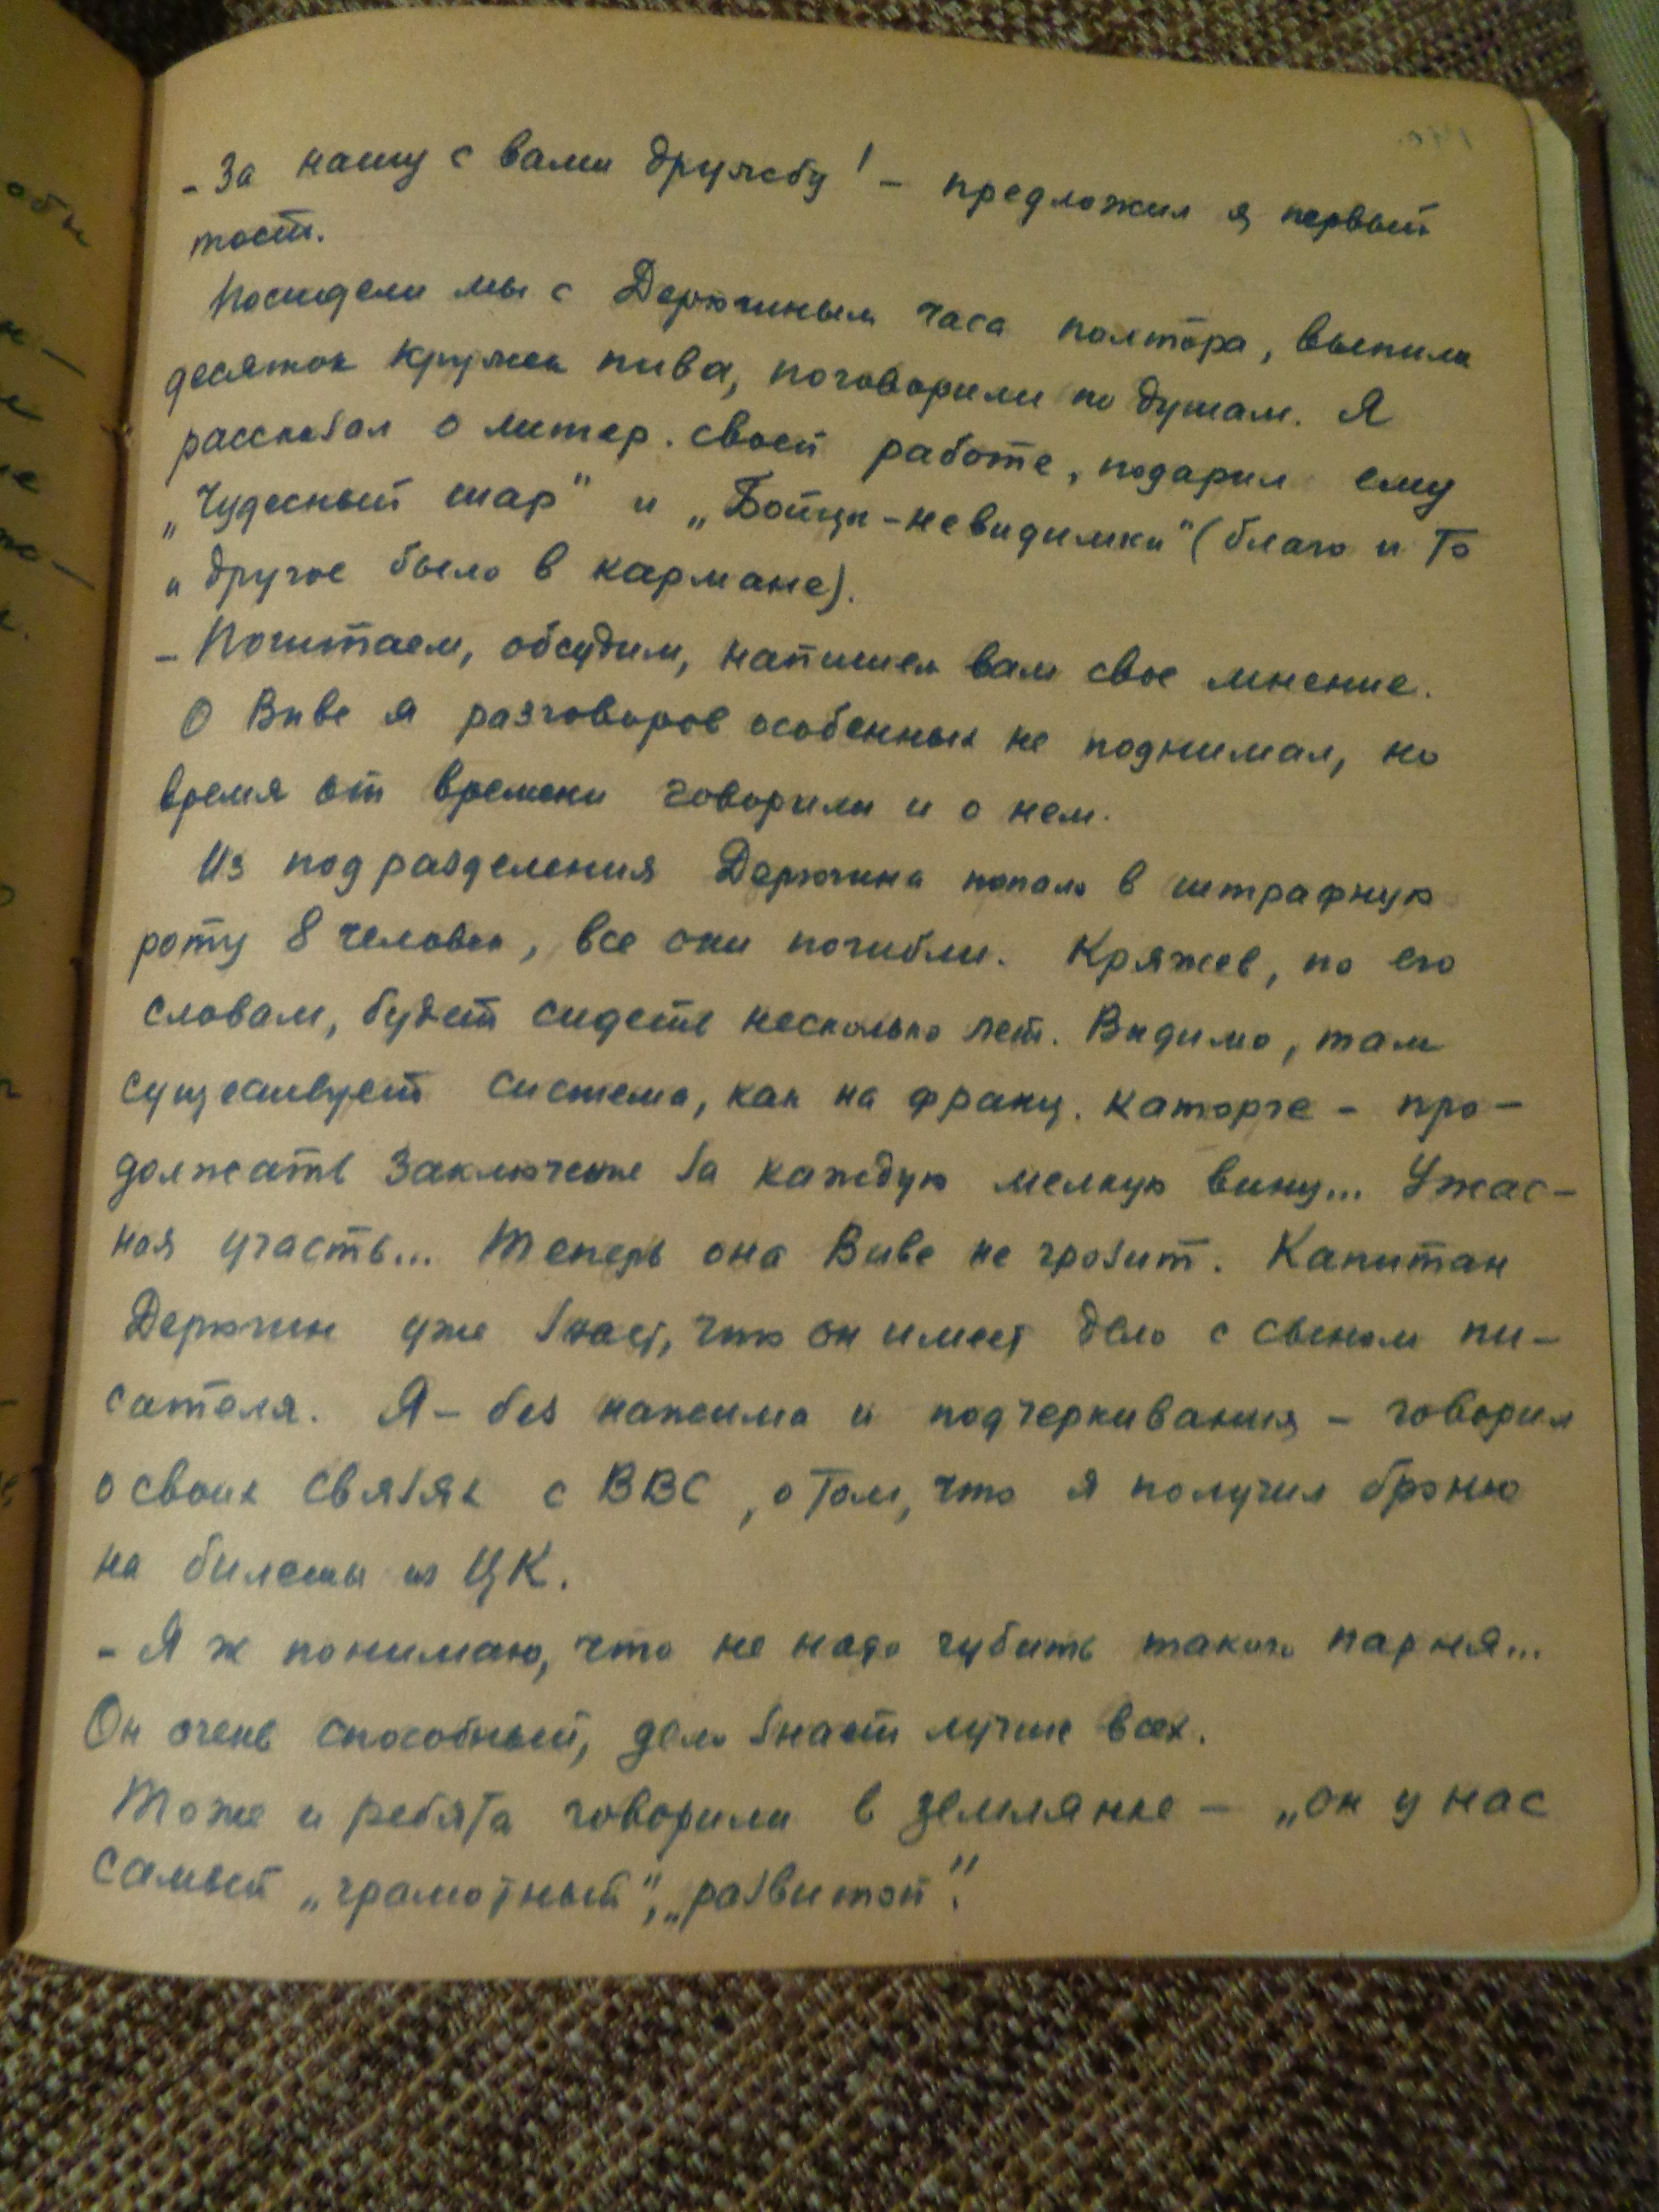 - За нашу с вами дружбу! - предложил я первый
тост.
Посидели мы с Дерюгиным часа полтора, выпили
десяток кружек пива, поговорили по душам. Я
рассказал о литер. своей работе, подарил ему
„Чудесный шар" и „Бойцы-невидимки" (благо и то
и другое было в кармане).
- Почитаем, обсудим, напишем вам свое мнение.
О Виве я разговоров особенных не поднимал, но
время от времени говорили и о нем.
Из подразделения Дерюгина попало в штрафную
роту 8 человек, все они погибли. Кряжев, по его
словам, будет сидеть несколько лет. Видимо, там
существует система, как на франц. каторге - про-
должать заключение за каждую мелкую вину... Ужас-
ная участь... Теперь она Виве не грозит. Капитан
Дерюгин уже знает, что он имеет дело с сыном пи-
сателя. Я - без нажима и подчеркивания - говорил
о своих связях с ВВС, о том, что я получил броню
на билеты из ЦК.
- Я ж понимаю, что не надо губить такого парня...
Он очень способный, дело знает лучше всех.
Тоже и ребята говорили в землянке - „он у нас
самый „грамотный", „развитой".